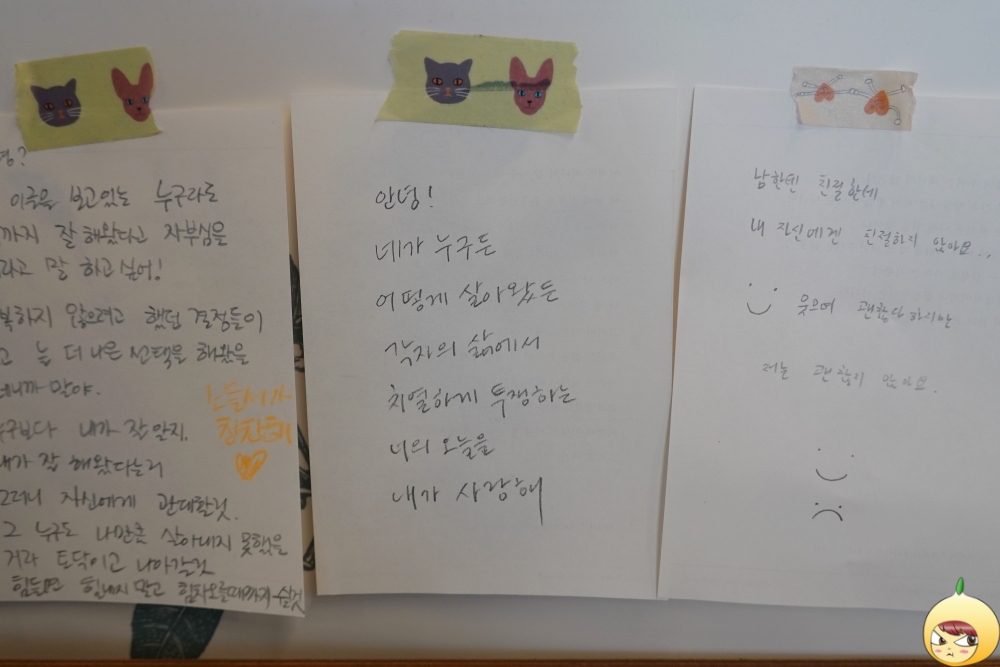 이글을 보고있는 누구라도
까지 잘 해왔다고 자부심을
라고 말 하고싶어!
하지 않으려고 했던 결정들이
고 늘 더 나은 선택을 해왔을
테니까 말야.
누구보다 내가 잘 알지.
내가 잘 해왔다는걸
그러니 자신에게 관대할것.
그 누구도 나만큼 살아내지 못했을
거라 토닥이고 나아갈것
힘들면 힘내지 말고 힘차오를때까지 쉴것
칭찬해
안녕!
네가 누구든
어떻게 살아왔든
각자의 삶에서
치열하게 투쟁하는
너의 오늘을
내가 사랑해
남한텐 친절한데
내 자신에겐 친절하지 않아요...
웃으며 괜찮다 하지만
저는 괜찮지 않아요.